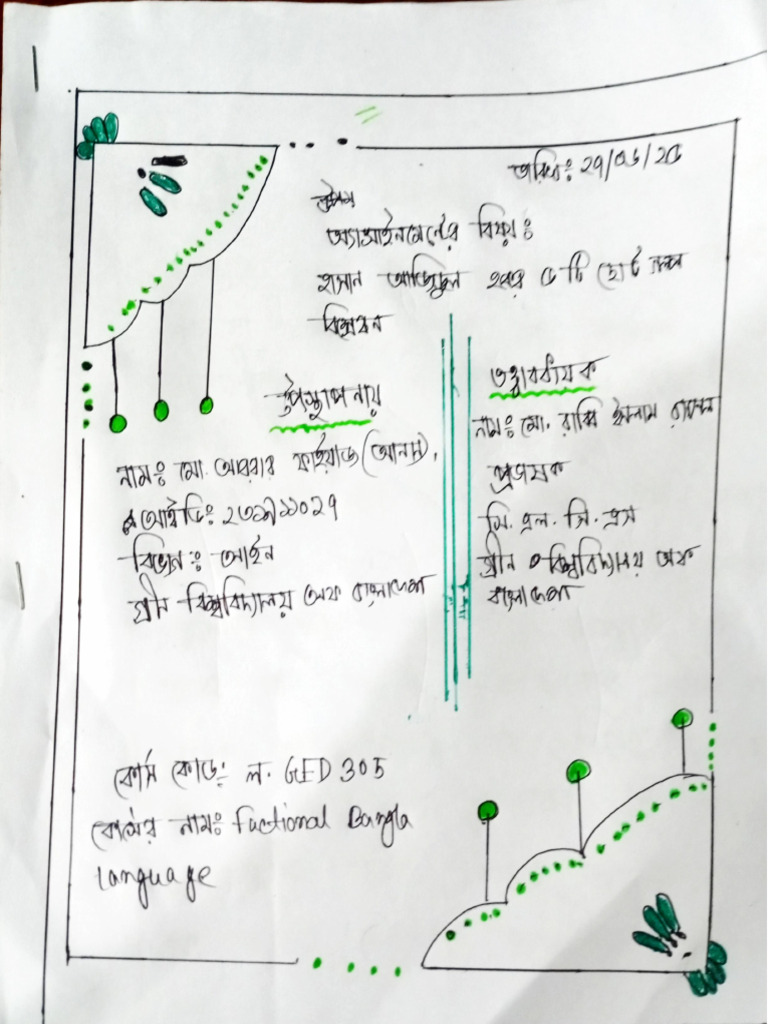 তারিখঃ ২৭/০৬/২৫
অ্যাসাইনমেন্টের বিষয়ঃ
হাসান আজিজুল হকের ৫ টি ছোট গল্প
বিশ্লেষন
উপস্থাপনায়
নামঃ মো. আবরার ফাইয়াজ (আনাস),
আইডিঃ
বিভাগঃ আইন
গ্রীন বিশ্ববিদ্যালয় অফ বাংলাদেশ
তত্ত্বাবধায়ক
নামঃ মো. রাব্বি ইসলাম
প্রভাষক
সি. এল. সি. এস
গ্রীন বিশ্ববিদ্যালয় অফ
বাংলাদেশ
কোর্স কোডঃ ল. GED 305
কোর্সের নামঃ Fuctional Bangla
Language